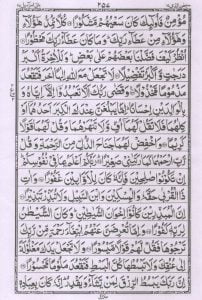 مُؤْمِنٌ فَأُولٰٓئِكَ كَانَ سَعْيُهُمْ مَّشْكُوْرًا كُلًّا نُّمِدُّ هٰٓؤُلَآءِ
وَهٰٓؤُلَآءِ مِنْ عَطَآءِ رَبِّكَ وَمَا كَانَ عَطَآءُ رَبِّكَ مَحْظُوْرًا
اُنْظُرْ كَيْفَ فَضَّلْنَا بَعْضَهُمْ عَلٰى بَعْضٍ وَلَلْاٰخِرَةُ اَكْبَرُ
دَرَجٰتٍ وَّاَكْبَرُ تَفْضِيْلًا لَا تَجْعَلْ مَعَ اللّٰهِ اِلٰهًا اٰخَرَ فَتَقْعُدَ
مَذْمُوْمًا مَّخْذُوْلًا وَقَضٰى رَبُّكَ اَلَّا تَعْبُدُوْٓا اِلَّآ اِيَّاهُ وَ
بِالْوَالِدَيْنِ اِحْسَانًا اِمَّا يَبْلُغَنَّ عِنْدَكَ الْكِبَرَ اَحَدُهُمَآ اَوْ
كِلٰهُمَا فَلَا تَقُلْ لَّهُمَآ اُفٍّ وَّلَا تَنْهَرْهُمَا وَقُلْ لَّهُمَا قَوْلًا
كَرِيْمًا وَاخْفِضْ لَهُمَا جَنَاحَ الذُّلِّ مِنَ الرَّحْمَةِ وَقُلْ
رَّبِّ ارْحَمْهُمَا كَمَا رَبَّيٰنِيْ صَغِيْرًا رَبُّكُمْ اَعْلَمُ بِمَا فِيْ نُفُوْسِكُمْ
اِنْ تَكُوْنُوْا صٰلِحِيْنَ فَاِنَّهٗ كَانَ لِلْاَوَّابِيْنَ غَفُوْرًا وَاٰتِ
ذَا الْقُرْبٰى حَقَّهٗ وَالْمِسْكِيْنَ وَابْنَ السَّبِيْلِ وَلَا تُبَذِّرْ تَبْذِيْرًا
اِنَّ الْمُبَذِّرِيْنَ كَانُوْٓا اِخْوَانَ الشَّيٰطِيْنِ وَكَانَ الشَّيْطٰنُ
لِرَبِّهٖ كَفُوْرًا وَاِمَّا تُعْرِضَنَّ عَنْهُمُ ابْتِغَآءَ رَحْمَةٍ مِّنْ رَّبِّكَ
تَرْجُوْهَا فَقُلْ لَّهُمْ قَوْلًا مَّيْسُوْرًا وَلَا تَجْعَلْ يَدَكَ مَغْلُوْلَةً
اِلٰى عُنُقِكَ وَلَا تَبْسُطْهَا كُلَّ الْبَسْطِ فَتَقْعُدَ مَلُوْمًا مَّحْسُوْرًا
اِنَّ رَبَّكَ يَبْسُطُ الرِّزْقَ لِمَنْ يَّشَآءُ وَيَقْدِرُ اِنَّهٗ كَانَ بِعِبَادِهٖ